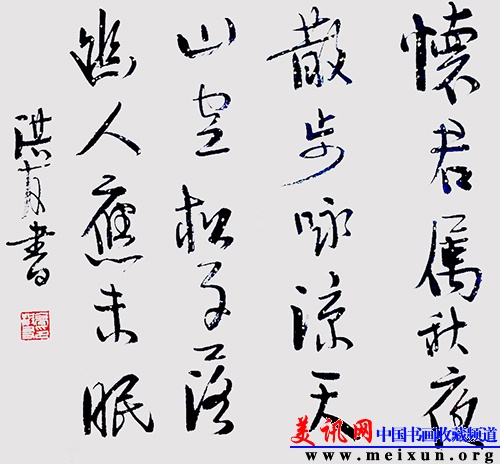 懷君属秋夜
散步咏涼天
山空松子落
幽人應未眠
洪有書
美讯网 中国书画收藏频道
www.meixun.org